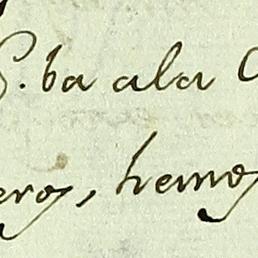 S. ba ala
eros, hemos